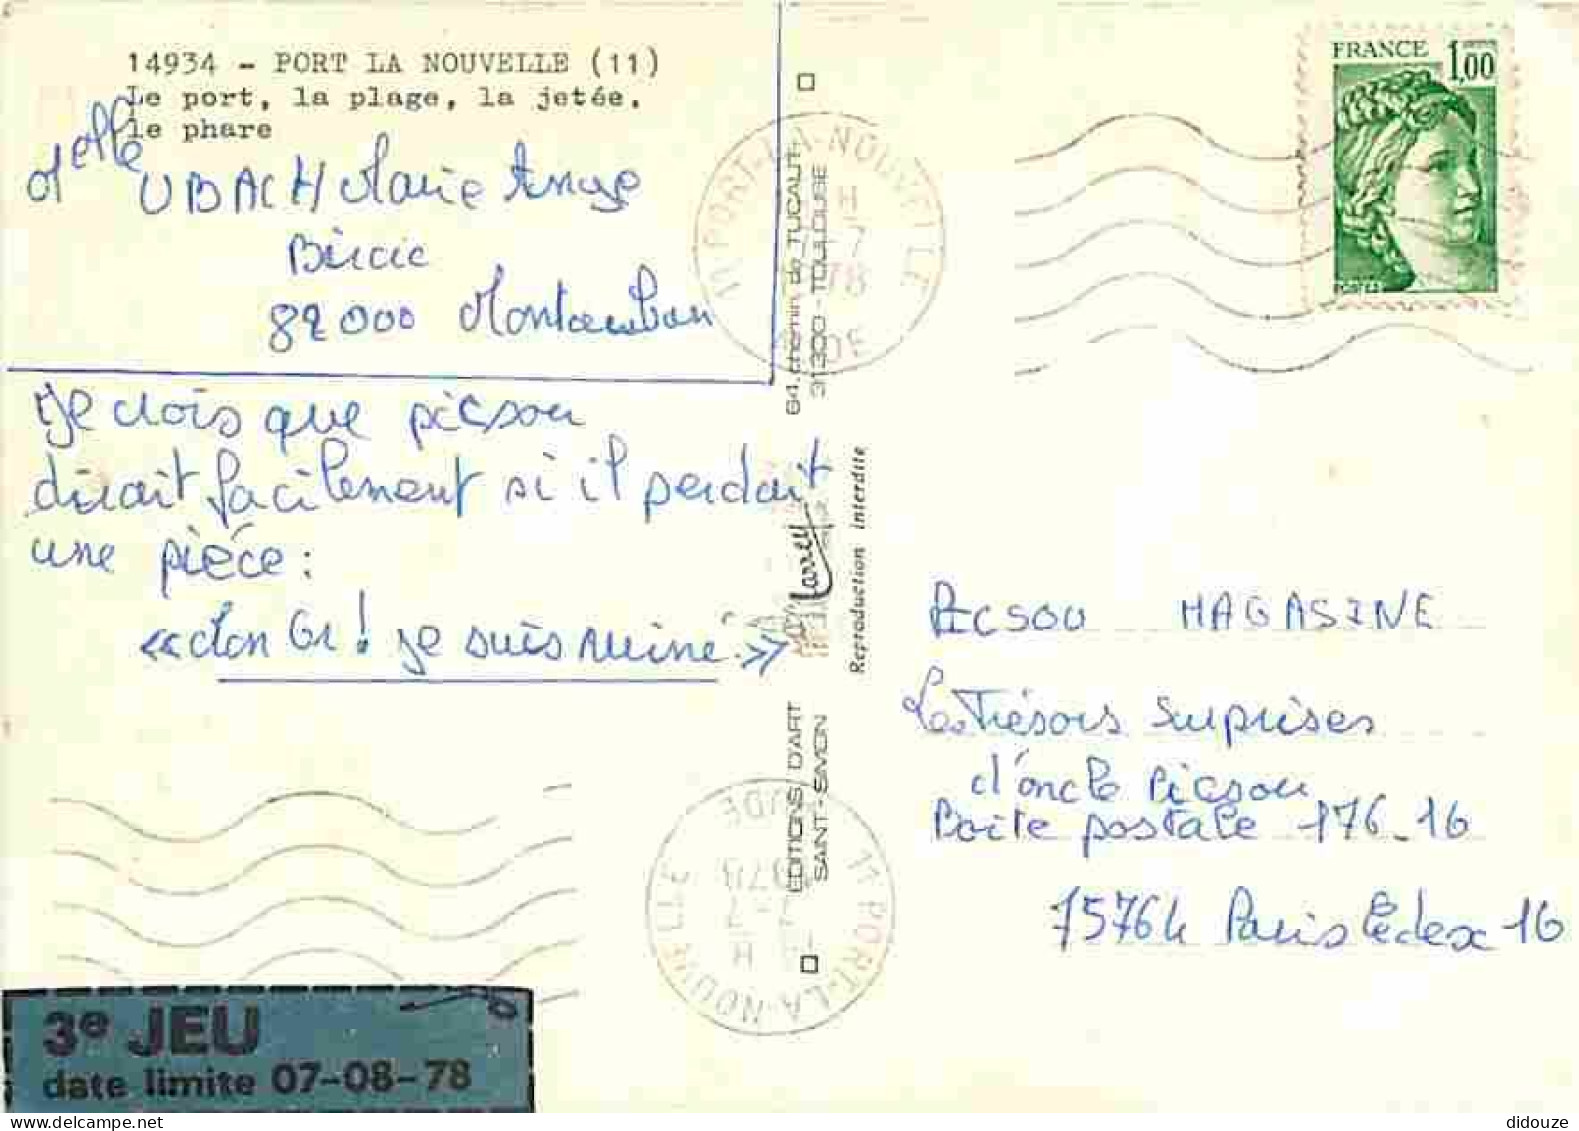 14934 - PORT LA NOUVELLE (11)
Le port, la plage, la jetée.
le phare
Melle UBACH Marie Ange
Bircic
82000 Montauban
Je crois que picsou
dirait facilement si il perdait
une piéce :
«Mon Or! je suis ruiné.»
3e JEU
date limite 07-08-78
64, chemin de TUCAUT
31300 - TOULOUSE
Larrey
Reproduction interdite
EDITIONS D'ART
SAINT-SIMON
11 PORT-LA-NOUVELLE
H
7-7
1978
11 PORT-LA-NOUVELLE
AUDE
H
7-7
1978
FRANCE 1,00
PICSOU MAGASINE
Les Trésors surprises
d'oncle Picsou
Boite postale 176-16
75764 Paris Cédex 16
didouze